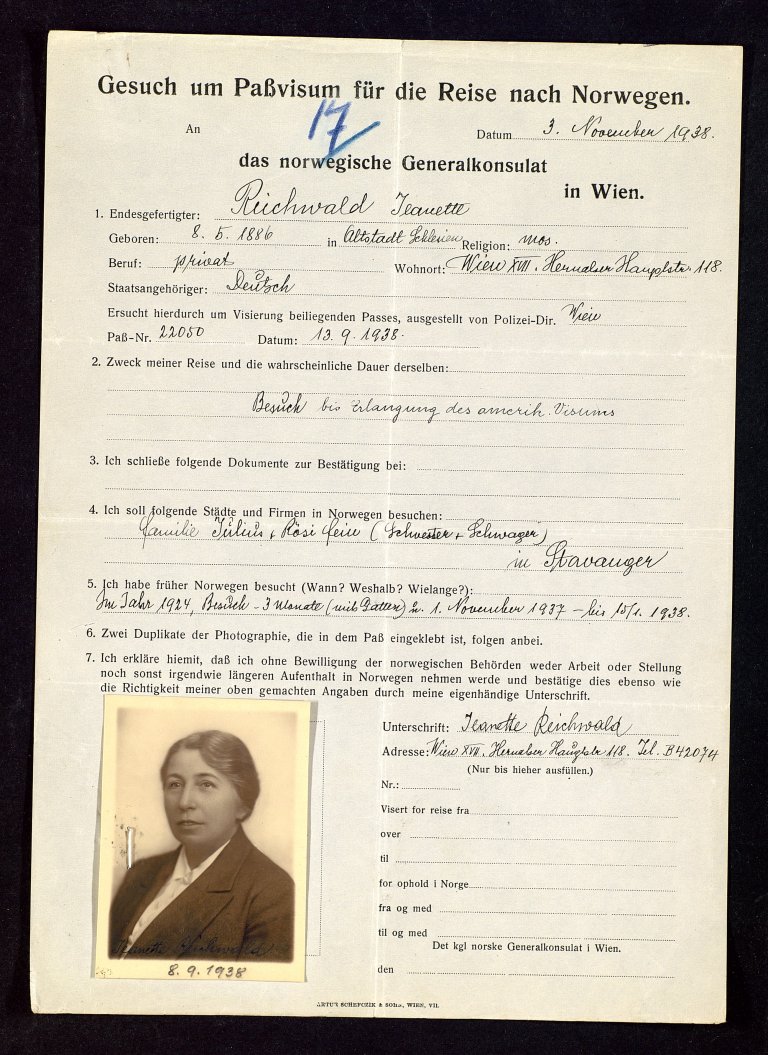 Gesuch um Paßvisum für die Reise nach Norwegen.
17
An
Datum 3. November 1938.
das norwegische Generalkonsulat
in Wien.
1. Endesgefertigter: Reichwald Jeanette
Geboren: 8. 5. 1886 in Altstadt Schlesien Religion: mos.
Beruf: privat Wohnort: Wien XVII. Hernalser Hauptstr. 118.
Staatsangehöriger: Deutsch
Ersucht hierdurch um Visierung beiliegenden Passes, ausgestellt von Polizei-Dir. Wien
Paß-Nr. 22050 Datum: 13. 9. 1938.
2. Zweck meiner Reise und die wahrscheinliche Dauer derselben:
Besuch bis Erlangung des amerik. Visums
3. Ich schließe folgende Dokumente zur Bestätigung bei:
4. Ich soll folgende Städte und Firmen in Norwegen besuchen:
Familie Julius & Rosi Fein (Schwester + Schwager)
in Stavanger
5. Ich habe früher Norwegen besucht (Wann? Weshalb? Wielange?):
Im Jahr 1924, Besuch - 3 Monate (mit Gatten) u. 1. November 1937 - bis 15/1. 1938.
6. Zwei Duplikate der Photographie, die in dem Paß eingeklebt ist, folgen anbei.
7. Ich erkläre hiemit, daß ich ohne Bewilligung der norwegischen Behörden weder Arbeit oder Stellung
noch sonst irgendwie längeren Aufenthalt in Norwegen nehmen werde und bestätige dies ebenso wie
die Richtigkeit meiner oben gemachten Angaben durch meine eigenhändige Unterschrift.
Unterschrift: Jeanette Reichwald
Adresse: Wien XVII. Hernalser Hauptstr 118. Tel. B42074
(Nur bis hieher ausfüllen.)
Nr.:
Visert for reise fra
over
til
for ophold i Norge
fra og med
til og med
Det kgl norske Generalkonsulat i Wien.
den
Jeanette Reichwald
8. 9. 1938
ARTUR SCHEFCZIK & SOHN, WIEN, VII.